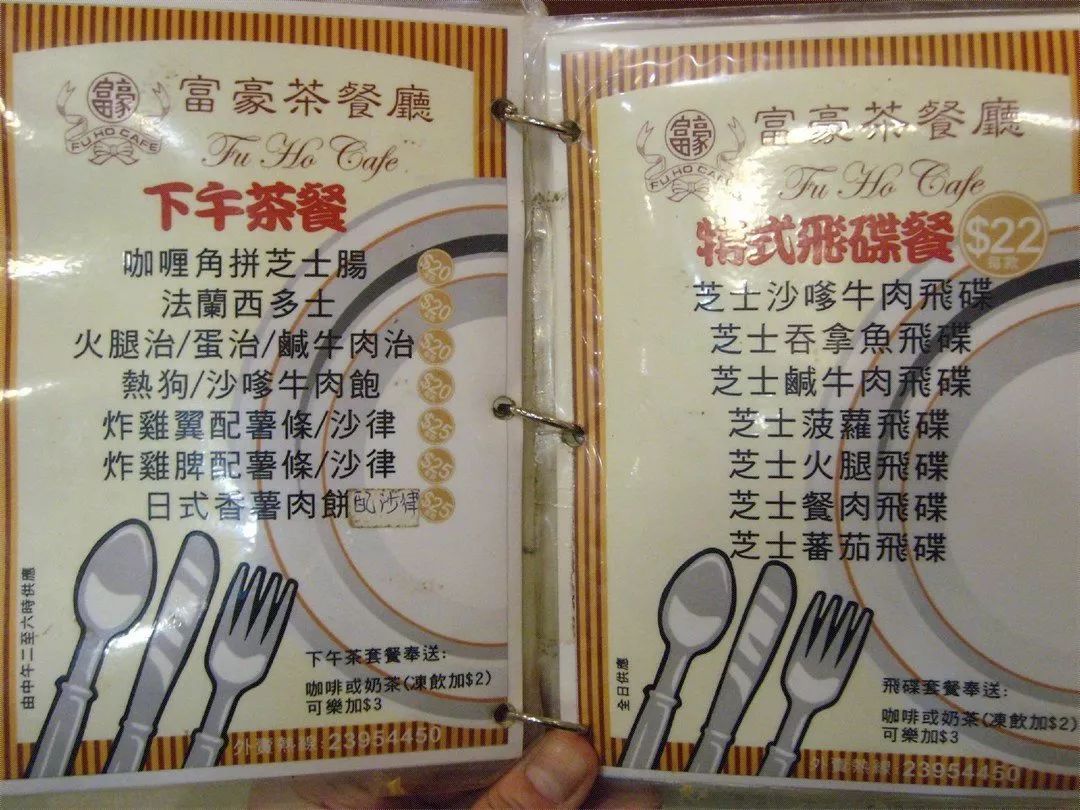 富豪
FU HO CAFE
富豪茶餐廳
Fu Ho Cafe
下午茶餐
咖喱角拼芝士腸 $20
法蘭西多士 $20
火腿治/蛋治/鹹牛肉治 $20
熱狗/沙嗲牛肉飽 $20
炸雞翼配薯條/沙律 $25
炸雞脾配薯條/沙律 $25
日式香薯肉餅配沙律 $25
由中午二至六時供應
下午茶套餐奉送:
咖啡或奶茶(凍飲加$2)
可樂加$3
外賣熱線 23954450
富豪
FU HO CAFE
富豪茶餐廳
Fu Ho Cafe
特式飛碟餐 $22
每款
芝士沙嗲牛肉飛碟
芝士吞拿魚飛碟
芝士鹹牛肉飛碟
芝士菠蘿飛碟
芝士火腿飛碟
芝士餐肉飛碟
芝士蕃茄飛碟
全日供應
飛碟套餐奉送:
咖啡或奶茶(凍飲加$2)
可樂加$3
外賣熱線 23954450